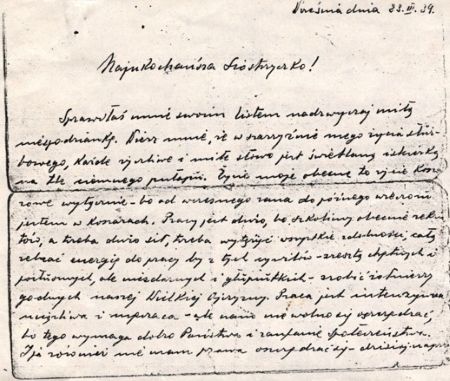 Września dnia 23.III.39.
Najukochańsza Siostrzyczko!
Sprawiłaś mnie swoim listem nadzwyczaj miłą
niespodziankę. Wierz mnie, że w szarzyźnie mego życia służ-
bowego, każde życzliwe i miłe słowo jest świetlaną iskierką
na tle ciemnego pułapu. Życie moje obecne to życie kosza-
rowe wyłącznie - bo od wczesnego rana do późnego wieczora
jestem w koszarach. Pracy jest dużo, bo szkolimy obecnie rekru-
tów, a trzeba dużo sił, trzeba wytężyć wszystkie zdolności, całą
zebrać energię do pracy by z tych cywilów - zresztą chętnych i
pociesznych, ale niezdarnych i - zrobić żołnierzy
godnych naszej Wielkiej Ojczyzny. Praca jest intensywna
uciążliwa i - ale nam nie wolno jej oszczędzać,
bo tego wymaga dobro Państwa i zaufanie Społeczeństwa.
I ja również nie mam prawa oszczędzać się - dzisiaj